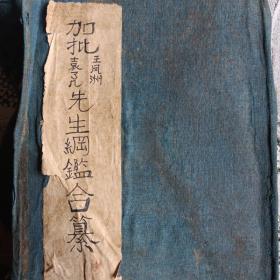 加批王凤洲袁了凡先生綱鑑合纂